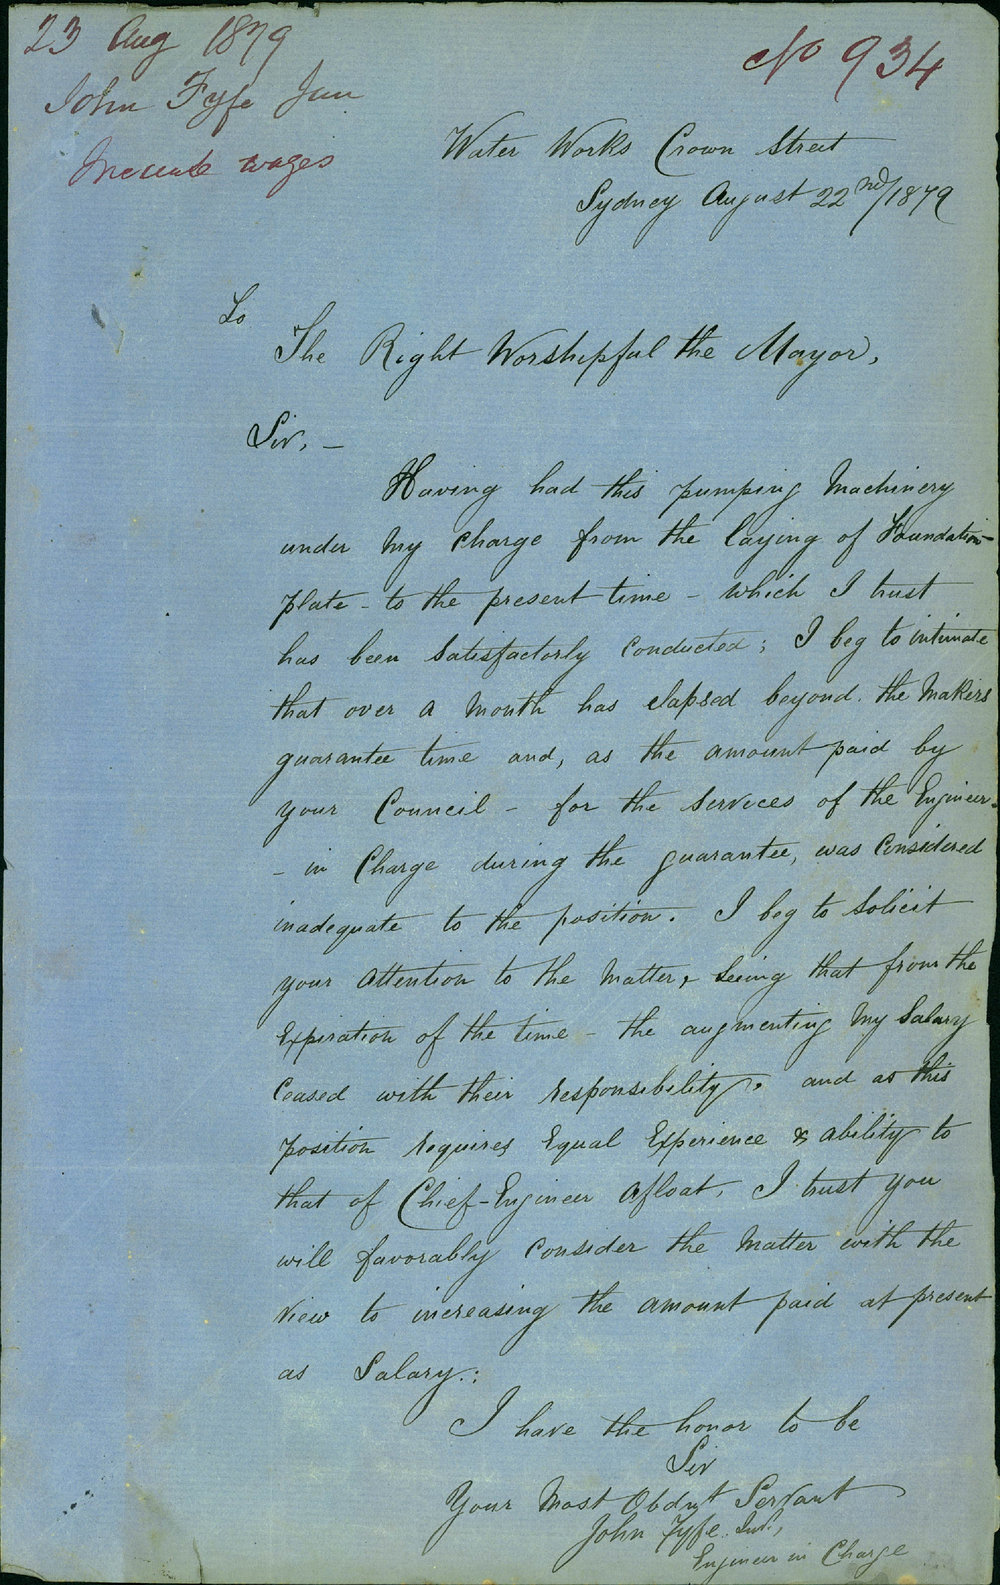 23 Aug 1879
No 934
John Fyfe Jun
Increase wages
Water Works Crown Street
Sydney August 22nd/1879
To
The Right Worshipful the Mayor,
Sir, —
Having had this pumping Machinery
under My Charge from the laying of Foundation-
plate - to the present time - which I trust
has been Satisfactorly Conducted; I beg to intimate
that over a Month has elapsed beyond the Makers
guarantee time and, as the amount paid by
your Council - for the Services of the Engineer-
- in Charge during the guarantee, was Considered
inadequate to the position. I beg to Solicit
your Attention to the Matter, Seeing that from the
Expiration of the time - the augmenting My Salary
Ceased with their responsibility, and as this
position requires Equal Experience & ability to
that of Chief-Engineer Afloat, I trust you
will favorably Consider the Matter with the
View to increasing the amount paid at present
as Salary.:
I have the honor to be
Sir
Your Most Obdnt Servant
John Fyfe Jun.,
Engineer in Charge